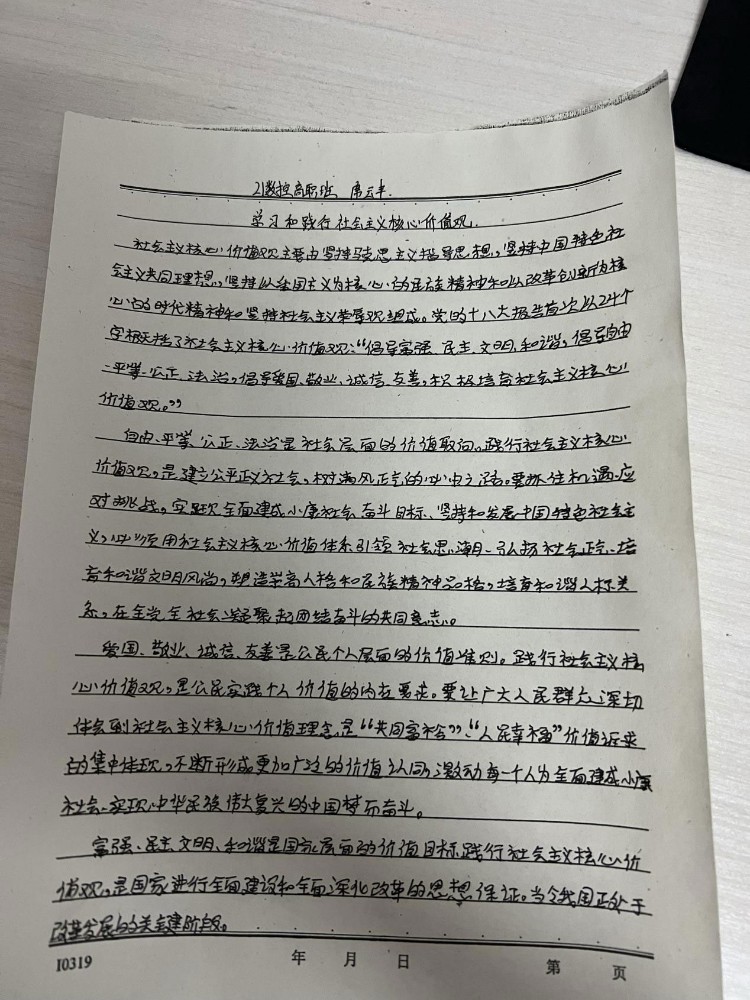 21数控高职班 席云丰.
学习和践行社会主义核心价值观.
社会主义核心价值观主要由坚持马克思主义指导思想,坚持中国特色社
会主义共同理想,坚持以爱国主义为核心的民族精神和以改革创新为核
心的时代精神和坚持社会主义荣辱观组成。党的十八大报告首次以24个
字概括了社会主义核心价值观:“倡导富强、民主、文明、和谐,倡导自由
、平等、公正、法治,倡导爱国、敬业、诚信、友善,积极培育社会主义核心
价值观。”
自由、平等、公正、法治是社会层面的价值取向。践行社会主义核心
价值观,是建立公平正义社会,树清风正气的必由之路。要抓住机遇,应
对挑战,实现全面建成小康社会奋斗目标、坚持和发展中国特色社会主
义,必须用社会主义核心价值体系引领社会思潮、弘扬社会正气、培
育和谐文明风尚,塑造崇高人格和民族精神品格,培育和谐人际关
系,在全党全社会凝聚起团结奋斗的共同意志。
爱国、敬业、诚信、友善是公民个人层面的价值准则。践行社会主义核
心价值观,是公民实践个人价值的内在要求。要让广大人民群众深切
体会到社会主义核心价值理念是“共同富裕”、“人民幸福”价值诉求
的集中体现,不断形成更加广泛的价值认同,激动每一个人为全面建成小康
社会、实现中华民族伟大复兴的中国梦而奋斗。
富强、民主、文明、和谐是国家层面的价值目标践行社会主义核心价
值观,是国家进行全面建设和全面深化改革的思想保证。当今我国正处于
改革发展的关键阶段。
10319 年 月 日 第 页